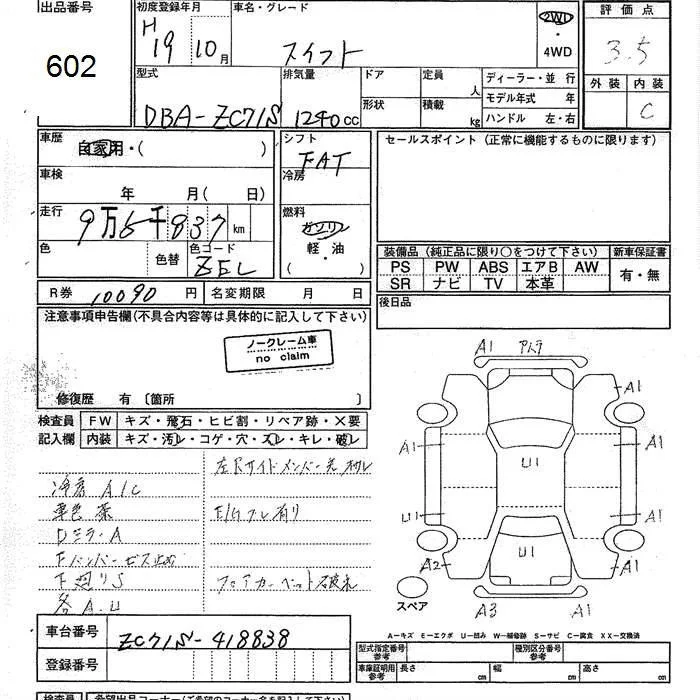 出品番号
602
初度登録年月
H
19 10月
車名・グレード
スイフト
2WD
・
4WD
評価点
3.5
外装 内装
C
型式
DBA-ZC71S
排気量
1240cc
ドア
形状
定員
人
積載
kg
ディーラー・並 行
モデル年式 年
ハンドル 左・右
車歴
自家用・( )
車検
年 月( 日)
走行
9万6千837km
色
色替
色コード
ZEL
シフト
FAT
冷房
燃料
ガソリン
軽・油
( )
セールスポイント(正常に機能するものに限ります)
装備品(純正品に限り○をつけて下さい)
新車保証書
PS PW ABS エアB AW
SR ナビ TV 本革
有・無
後日品
R券 10090 円
名変期限 月 日
注意事項申告欄(不具合内容等は具体的に記入して下さい)
ノークレーム車
no claim
修復歴 有〔箇所 〕
検査員
記入欄
FW キズ・飛石・ヒビ割・リペア跡・X要
内装 キズ・汚レ・コゲ・穴・スレ・キレ・破レ
左右サイドメンバー先
冷房 A/C
DミラーA
E/Gフレ有リ
Fバンパービス止め
下廻りS
フロアカーペット破れ
各A.U
A1
A1
A1
A1
U1
U1
A1
U1
A1
A2
A1
スペア
A3
A1
A-キズ E-エクボ U-凹み W-補修跡 S-サビ C-腐食 XX-交換済
車台番号 ZC71S-418838
登録番号
型式指定番号
参考
種別区分番号
参考
車庫証明用
参考
長さ cm
幅 cm
高さ cm
検査員
希望出品コーナー(ご希望のコーナー名を記入して下さい)